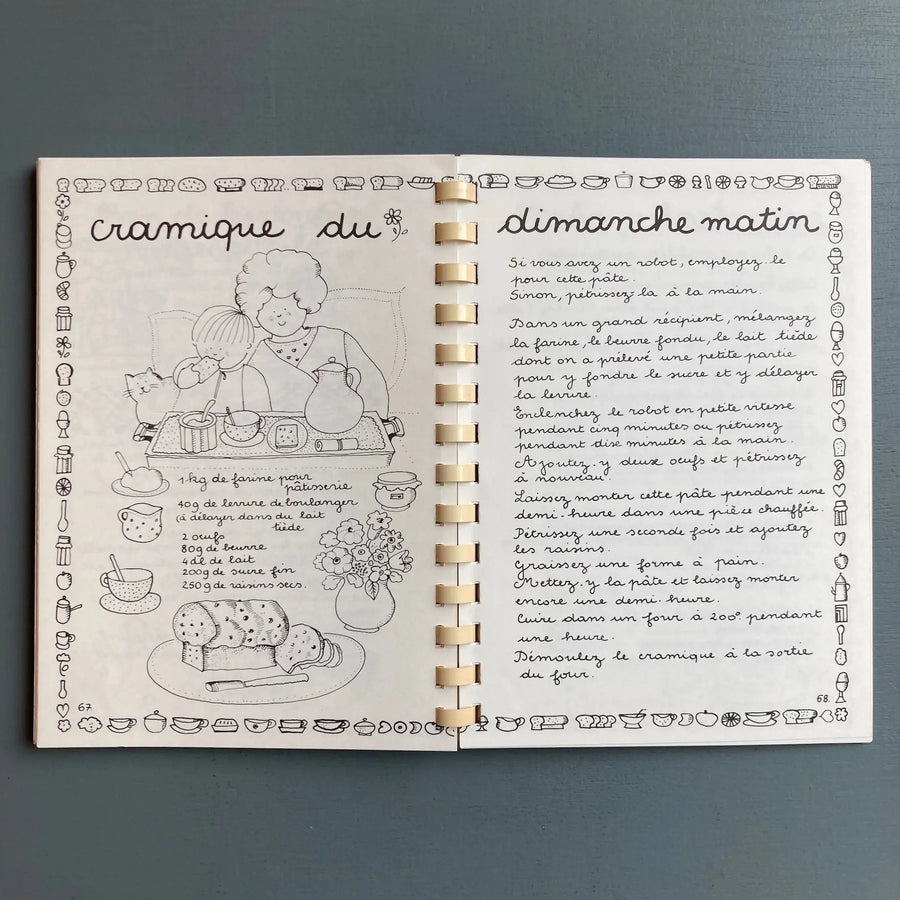 cramique du
1 kg de farine pour
pâtisserie
40g de levure de boulanger
(à délayer dans du lait
tiède
2 oeufs
80g de beurre
4 dl de lait
200g de sucre fin
250 g de raisins secs.
67
dimanche matin
Si vous avez un robot, employez-le
pour cette pâte.
Sinon, pétrissez-la à la main.
Dans un grand récipient, mélangez
la farine, le beurre fondu, le lait tiède
dont on a prélevé une petite partie
pour y fondre le sucre et y délayer
la levure.
Enclenchez le robot en petite vitesse
pendant cinq minutes ou pétrissez
pendant dix minutes à la main.
Ajoutez-y deux oeufs et pétrissez
à nouveau.
Laissez monter cette pâte pendant une
demi-heure dans une pièce chauffée.
Pétrissez une seconde fois et ajoutez
les raisins.
Graissez une forme à pain.
Mettez-y la pâte et laissez monter
encore une demi-heure.
Cuire dans un four à 200° pendant
une heure.
Démoulez le cramique à la sortie
du four.
68.